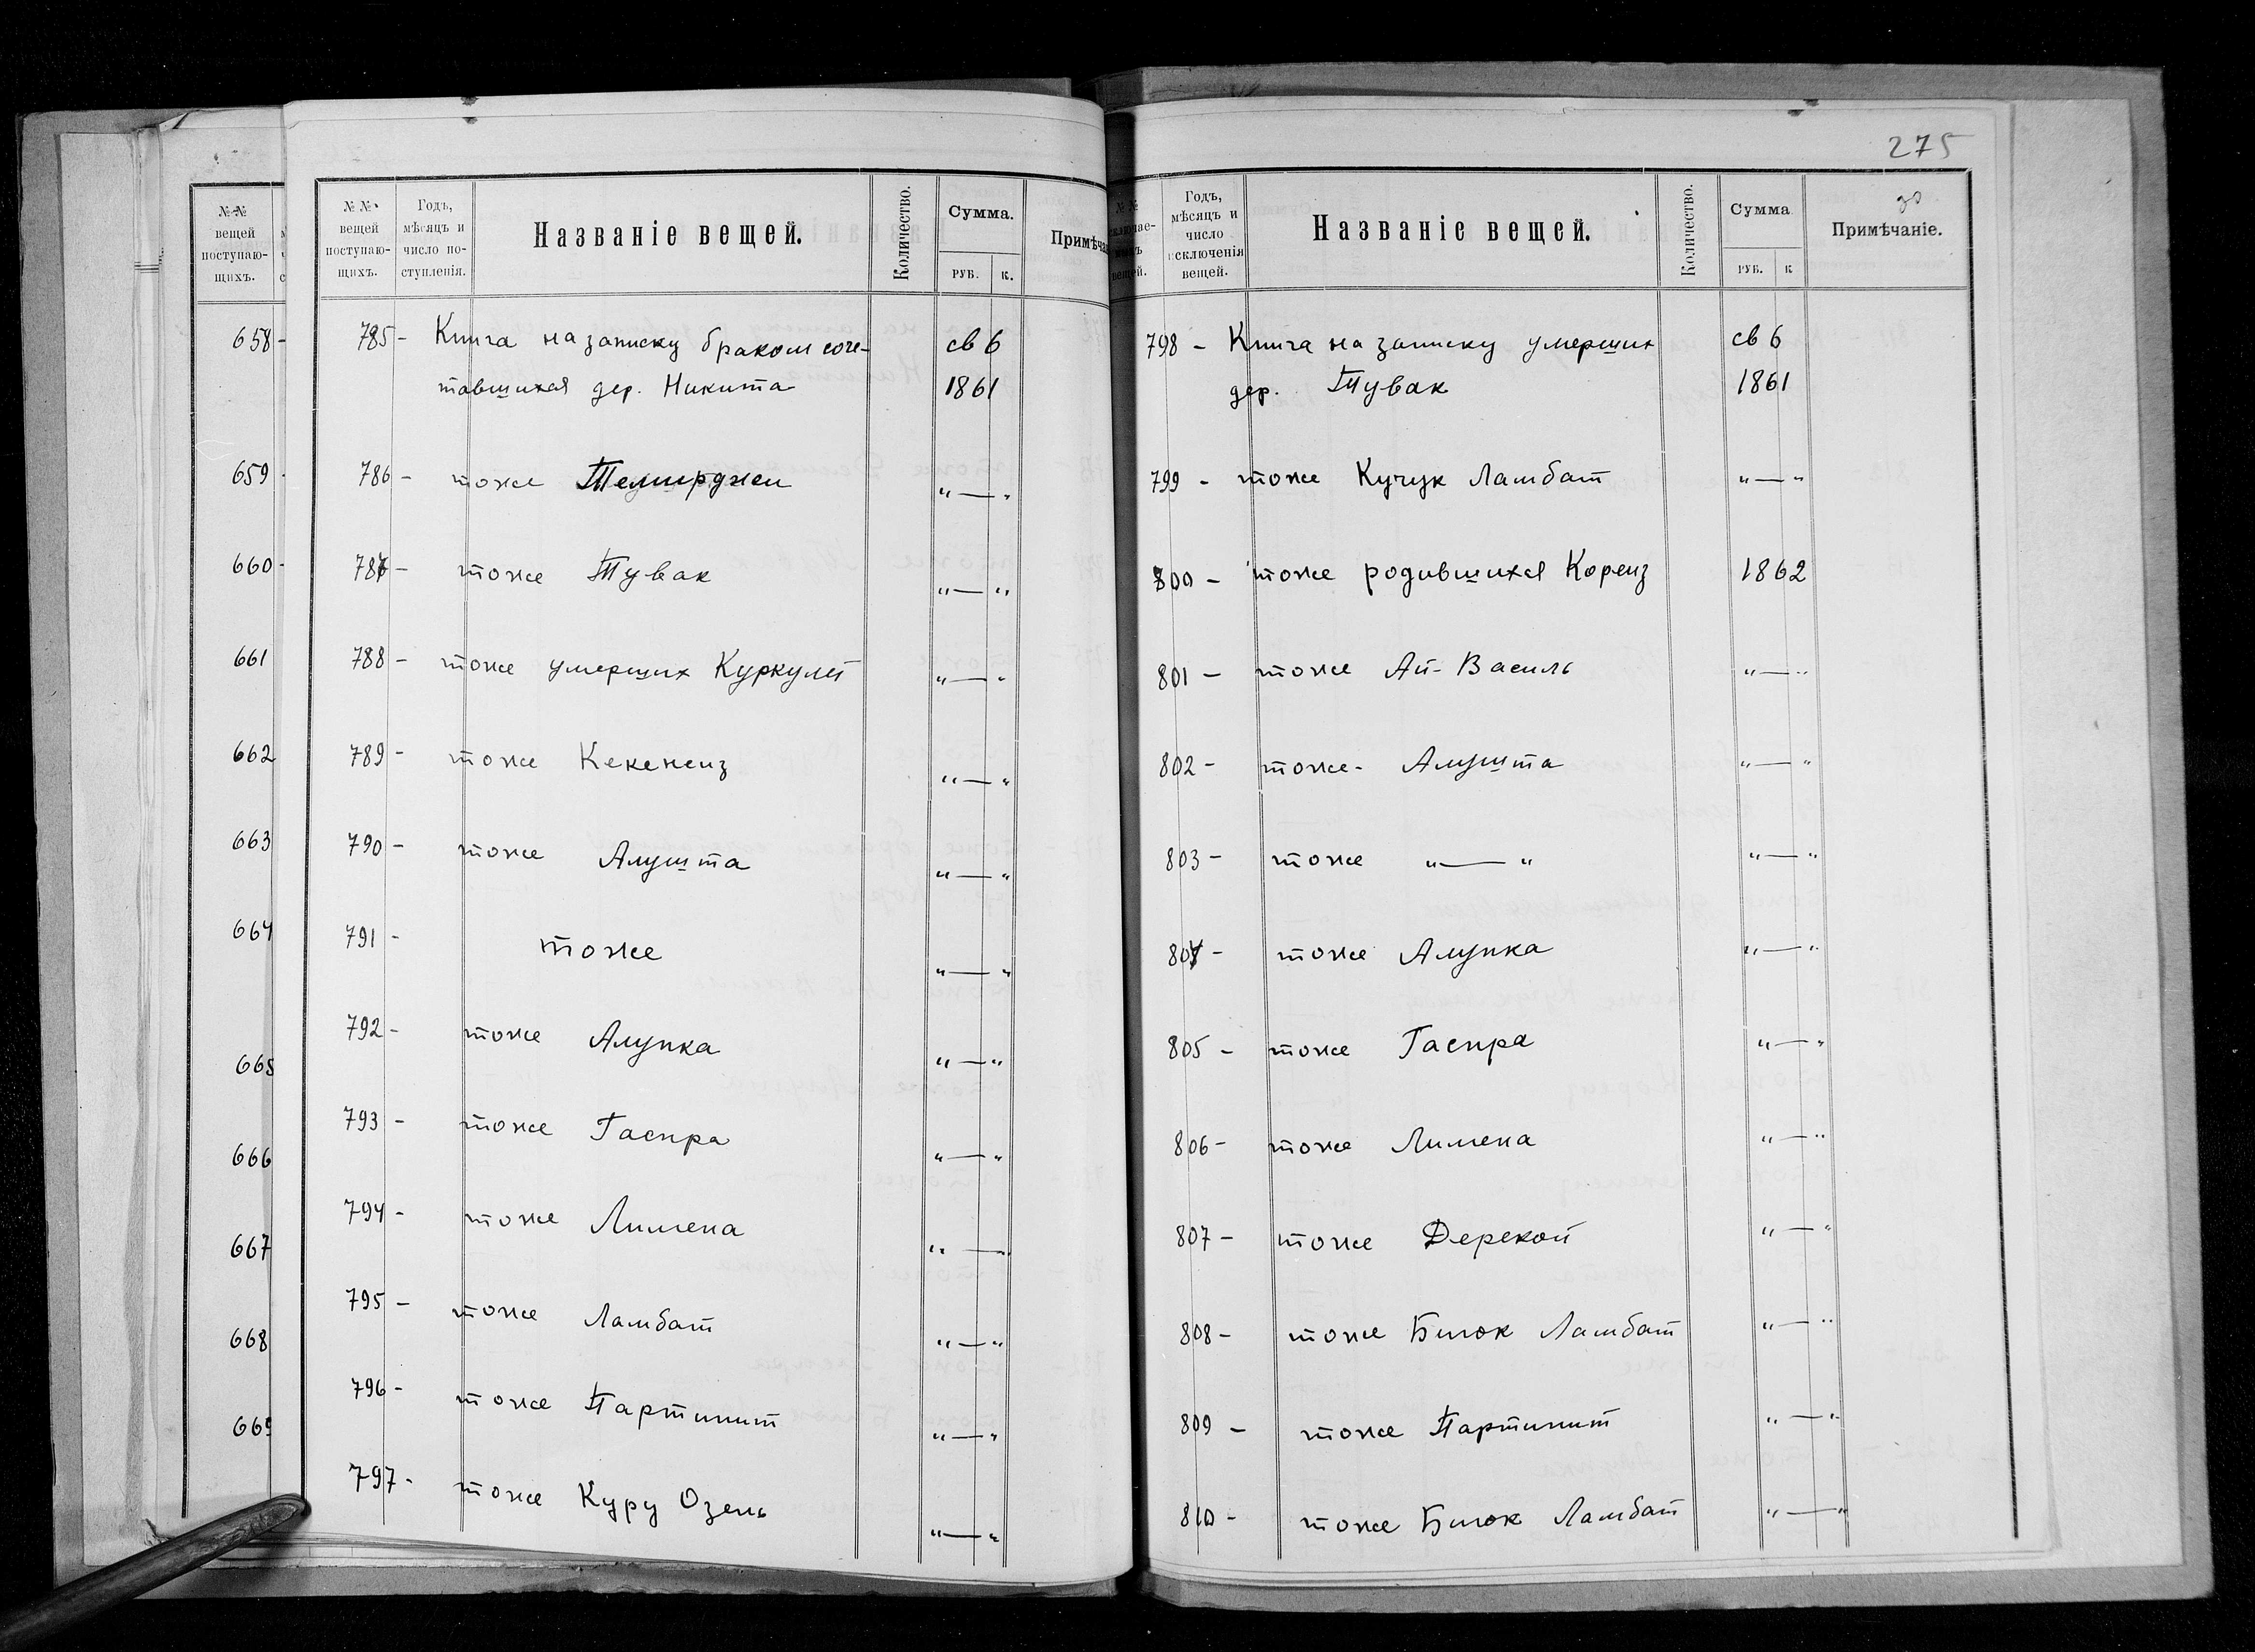 275
№ №
вещей
поступаю-
щихъ.
658 -
659 -
660 -
661
662
663
664
665
666
667
668
669
№ №
вещей
поступаю-
щихъ.
Годъ,
мѣсяцъ и
число по-
ступленія.
Названіе вещей.
Количество.
Сумма.
РУБ.
К.
785 - Книга на записку браком соче- св 6
тавшихся дер. Никита 1861
786 - тоже Темирджи " — "
787 - тоже Тувак " — "
788 - тоже умерших Куркулет " — "
789 - тоже Кекенеиз " — "
790 - тоже Алушта " — "
791 - тоже " — "
792 - тоже Алупка " — "
793 - тоже Гаспра " — "
794 - тоже Лимена " — "
795 - тоже Ламбат " — "
796 - тоже Партинит " — "
797 - тоже Куру Озень " — "
Годъ,
мѣсяцъ и
число
исключенія
вещей.
Названіе вещей.
Количество.
Сумма
РУБ.
К
Примѣчаніе.
798 - Книга на записку умерших св 6
дер. Тувак 1861
799 - тоже Кучук Ламбат " — "
800 - тоже родившихся Кореиз 1862
801 - тоже Ай-Василь " — "
802 - тоже - Алушта " — "
803 - тоже " — " " — "
804 - тоже Алупка " — "
805 - тоже Гаспра " — "
806 - тоже Лимена " — "
807 - тоже Дерекой " — "
808 - тоже Биюк Ламбат " — "
809 - тоже Партинит " — "
810 - тоже Биюк Ламбат " — "